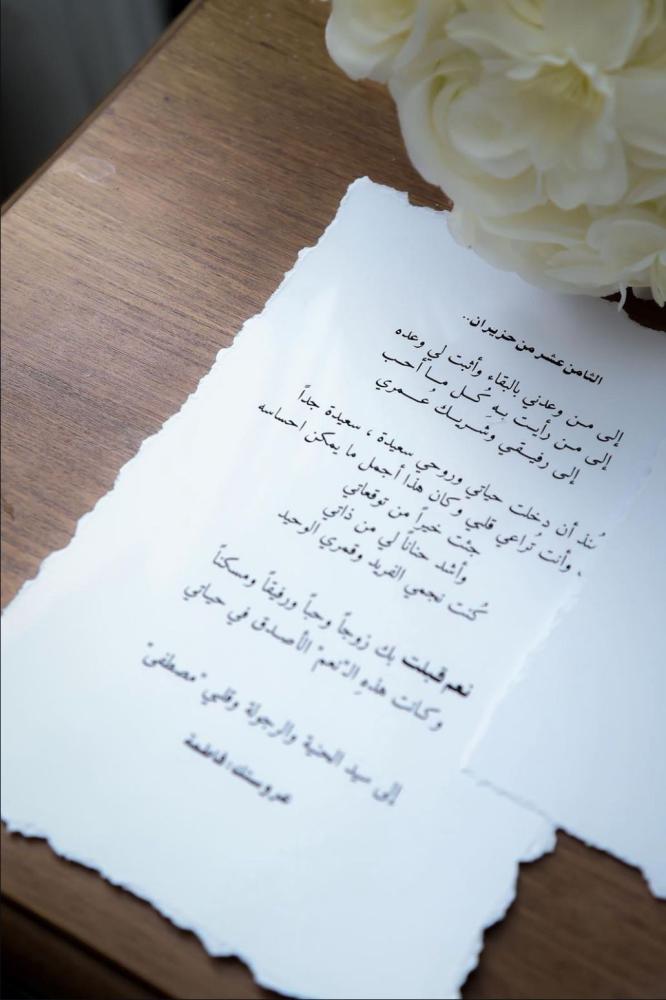 الثامن عشر من حزيران..
إلى من وعدني بالبقاء وأثبت لي وعده
إلى من رأيت بهِ كُل ما أحب
إلى رفيقي وشريك عُمري
مُنذ أن دخلت حياتي وروحي سعيدة ، سعيدة جداً
وأنت تُراعي قلبي وكان هذا أجمل ما يمكن احساسه
جئت خيراً من توقعاتي
وأشد حناناً لي من ذاتي
كُنت نجمي الفريد وقمري الوحيد
نعم قبلت بك زوجاً وحباً ورفيقاً ومسكناً
وكانت هذهِ الـ"نعم" الأصدق في حياتي
إلى سيد الحنية والرجولة وقلبي "مصطفى"
عروستك: فاطمة